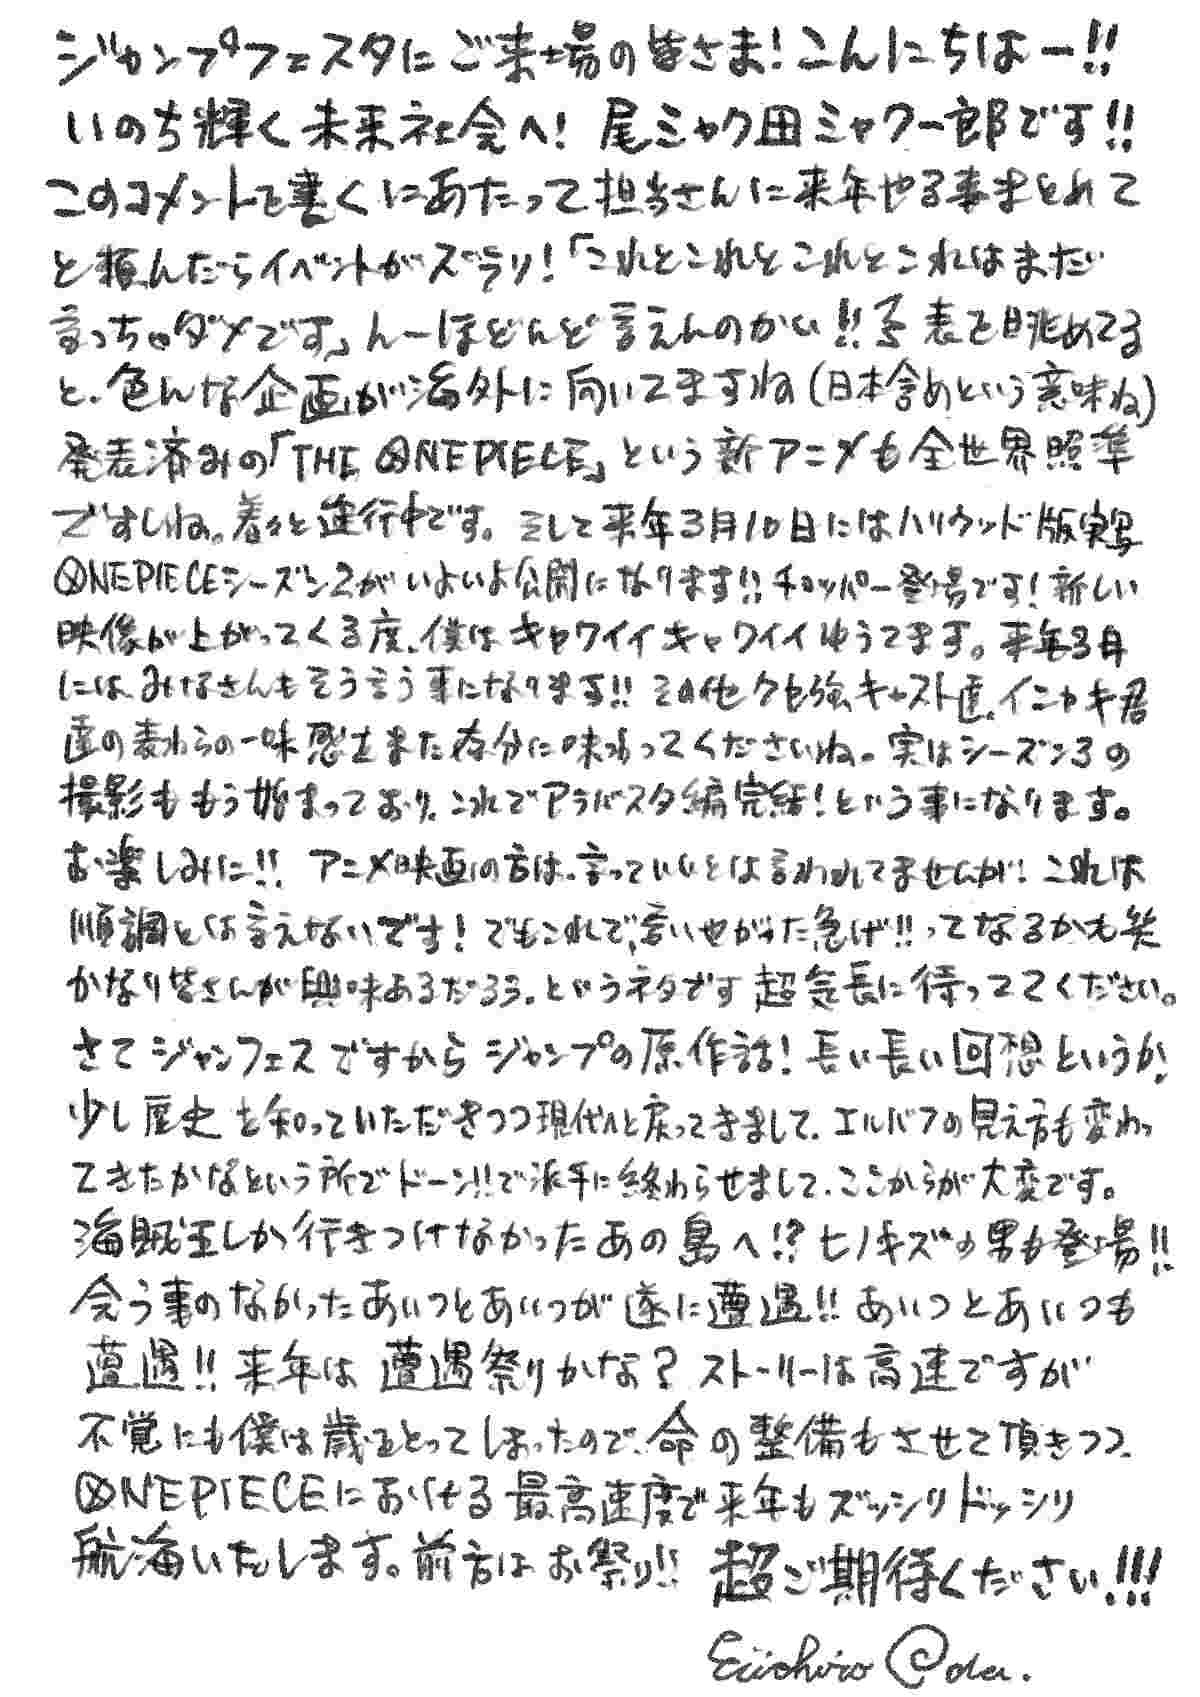 ジャンプフェスタにご来場の皆さま!こんにちはー!!
いのち輝く未来社会へ! 尾ミャク田ミャク一郎です!!
このコメントを書くにあたって担当さんに来年やる事まとめて
と頼んだらイベントがズラリ!「これとこれとこれとこれはまだ
言っちゃダメです」んーほどんど言えんのかい!!予表を眺めてる
と、色んな企画が海外に向いてますね(日本含めという意味ね)
発表済みの「THE ONE PIECE」という新アニメも全世界照準
ですしね。着々と進行中です。そして来年3月10日にはハリウッド版実写
ONE PIECEシーズン2がいよいよ公開になります!!チョッパー登場です!新しい
映像が上がってくる度、僕はキャワイイキャワイイゆうてます。来年3月
には、みなさんもそう言う事になります!!その他クセ強キャスト達、イニャキ君
達の麦わらの一味感をまた存分に味わってくださいね。実はシーズン3の
撮影ももう始まっており、これでアラバスタ編完結!という事になります。
お楽しみに!! アニメ映画の方は、言っていいとは言われてませんが!これは
順調とは言えないです!でもこれで、言いやがった急げ!!ってなるかも笑
かなり皆さんが興味あるだろう、というネタです 超気長に待っててください。
さてジャンフェスですからジャンプの原作話!長い長い回想というか、
少し歴史を知っていただきつつ現代へと戻ってきまして、エルバフの見え方も変わっ
てきたかなという所でドーン!!で派手に終わらせまして、ここからが大変です。
海賊王しか行きつけなかったあの島へ!?ヒノキズの男も登場!!
会う事のなかったあいつとあいつが遂に遭遇!!あいつとあいつも
遭遇!!来年は遭遇祭りかな?ストーリーは高速ですが
不覚にも僕は歳をとってしまったので、命の整備もさせて頂きつつ、
ONE PIECEにおける最高速度で来年もズッシリドッシリ
航海いたします。前方はお祭り!! 超ご期待ください!!!
Eiichiro Oda.